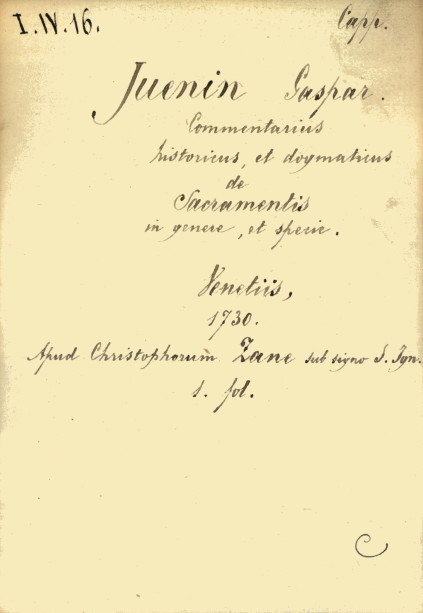 I. IV. 16.
Capp.
Juenin Gaspar.
Commentarius
historicus, et dogmaticus
de
Sacramentis
in genere, et specie.
Venetiis,
1730.
Apud Christophorum Zane sub signo S. Ign.
1. fol.
C